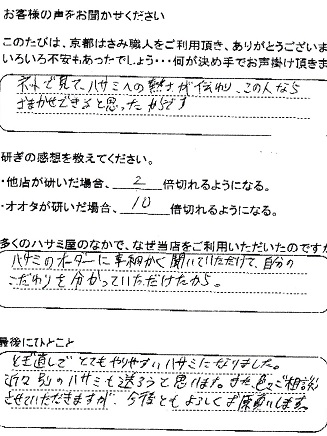 お客様の声をお聞かせください
このたびは、京都はさみ職人をご利用頂き、ありがとうございま
いろいろ不安もあったでしょう・・・何が決め手でお声掛け頂きま
ネットで見て、ハサミへの熱さが伝わり、この人なら
おまかせできると思ったからです
研ぎの感想を教えてください。
・他店が研いだ場合、 2 倍切れるようになる。
・オオタが研いだ場合、 10 倍切れるようになる。
多くのハサミ屋のなかで、なぜ当店をご利用いただいたのですか
ハサミのオーダーに事細かく聞いていただけて、自分の
こだわりを分かっていただけたから。
最後にひとこと
とぎ直しで とてもやりやすいハサミになりました。
近々 別のハサミも送ろうと思います。また 色々ご相談
させていただきますが、今後とも よろしくお願いします。